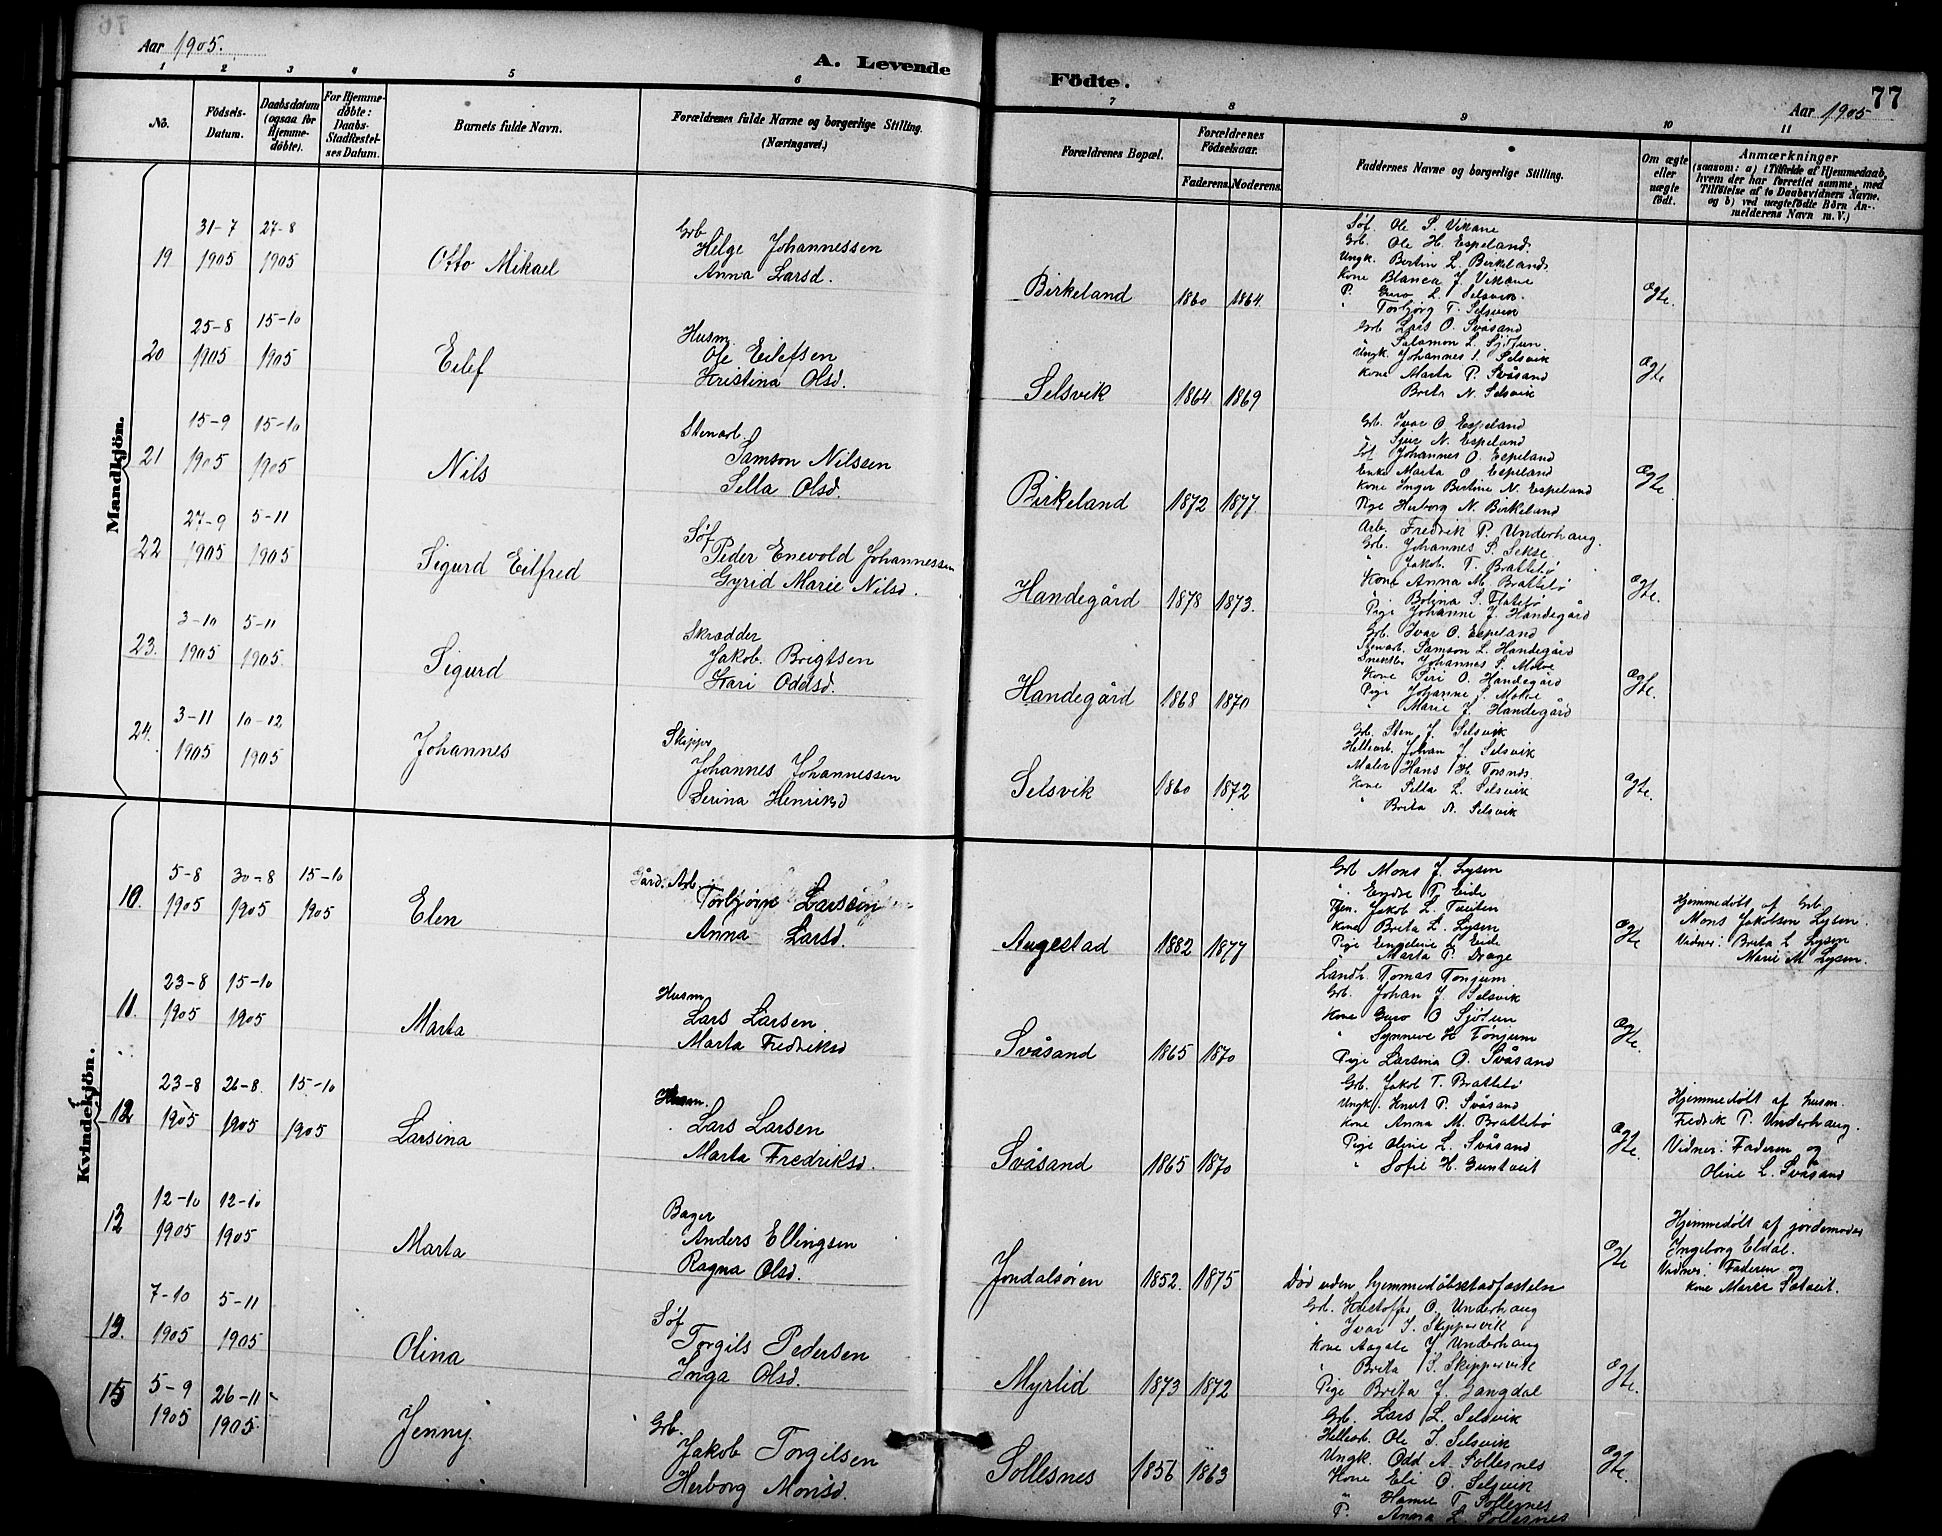 Aar 1905.
A. Levende Fødte.
77
Aar 1905
1 2 3 4 5 6 7 8 9 10 11
No.
Födsels-Datum.
Daabsdatum (ogsaa for Hjemme-døbte).
For Hjemme-døbte: Daabs-Stadfæstel-ses Datum.
Barnets fulde Navn.
Forældrenes fulde Navne og borgerlige Stilling. (Næringsvei.)
Forældrenes Bopæl.
Forældrenes Fødselsaar.
Faderens. Moderens.
Faddernes Navne og borgerlige Stilling.
Om ægte eller uægte født.
Anmærkninger
(saasom: a) i Tilfælde af Hjemmedaab, hvem der har forrettet samme, med Tilføielse af to Daabsvidners Navne. og b) ved uægtefødte Börn An-melderens Navn m. V.)
Mandkjön.
19
31-7 1905
27-8 1905
Otto Mikael
Grb. Helge Johannessen
Anna Larsd.
Birkeland
1860 1864
Søf. Ole S. Vikane
Grb. Ole H. Espeland
Ungk. Bertin L. Birkeland
Kone Blanca J. Vikane
P. Guro L. Selsvik
" Torbjørg T. Selsvik
Ægte.
20
25-8 1905
15-10 1905
Eilef
Husm. Ole Eilefsen
Kristina Olsd.
Selsvik
1864 1869
Grb. Lars O. Svåsand
" Salamon L. Sjötun
Ungk. Johannes S. Selsvik
Kone Marta P. Svåsand
Brita N. Selsvik
Ægte
21
15-9 1905
15-10 1905
Nils
Stenarb. Samson Nilssen
Sella Olsd.
Birkeland
1872 1877
Grb. Ivar O. Espeland
" Sjur N. Espeland
Johannes O. Espeland
Enke Marta O. Espeland
Kone Inger Bertine N. Espeland
Pige Herborg N. Birkeland
Ægte.
22
27-9 1905
5-11 1905
Sigurd Eilfred
Søf. Peder Enevold Johannessen
Gyrid Marie Nilsd.
Handegård
1878 1873.
Arb. Fredrik P. Underhaug.
Grb. Johannes S. Sekse
" Jakob T. Brattebø
Kone Anna M. Brattebø
" Bolina S. Flatebø
Pige Johanne J. Handegård
Ægte.
23.
3-10 1905
5-11 1905.
Sigurd
Skrædder
Jakob Brigtsen
Kari Oddsd.
Handegård
1868 1870
Grb. Ivar O. Espeland
Stenarb. Samson L. Handegård
Snekker Johannes S. Molve
Kone Siri O. Handegård
Pige Johanne S. Molve
" Marie J. Handegård
Ægte.
24.
3-11 1905
10-12 1905
Johannes
Skipper
Johannes Johannessen
Serina Henriksd
Selsvik
1860 1872
Grb. Sten J. Selsvik
Hellearb. Johan J. Selsvik
Maler Hans H. Torsnes
Kone Sella L. Selsvik
" Brita N. Selsvik
Ægte.
Kvindekjön.
10.
5-8 1905
30-8 1905
15-10 1905
Elen
Gård. Arb.
Torbjørn Larssen
Anna Larsd.
Augestad
1882 1877
Grb Mons J. Lysen
" Endre P. Eide
Tjen. Jakob L. Tveiten
Kone Brita L. Lysen
Pige Engeline L. Eide
" Marta P. Drage
Ægte
Hjemmedøbt af Grb.
Mons Jakobsen Lysen.
Vidner: Brita L Lysen
Marie M. Lysen.
11.
23-8 1905
15-10 1905
Marta
Husm
Lars Larsen
Marta Fredriksd
Svåsand
1865 1870
Landh. Tomas Tonjum
Grb. Johan J. Selsvik
Kone Guro O Sjötun
" Synneve H. Tønjum
Pige Larsina O. Svåsand
Ægte.
12
23-8 1905
26-8 1905
15-10 1905
Larsina
Husm.
Lars Larsen
Marta Fredriksd.
Svåsand
1865 1870
Grb. Jakob T. Brattebø
Ungk. Knut P. Svåsand
Kone Anna M. Brattebø
Pige Oline L. Svåsand
" Sofie H. Guntveit
Ægte.
Hjemmedøbt af husm.
Fredrik P. Underhaug.
Vidner: Faderen og
Oline L. Svåsand
13
12-10 1905
12-10 1905
Marta
Bager
Anders Ellingsen
Ragna Olsd.
Jondalsøren
1852. 1875
Død uden hjemmedåbsstadfæstelse
Ægte
Hjemmedøbt af jordemoder
Ingeborg Eldal.
Vidner: Faderen og
Kone Marie Solveit.
7-10 1905
5-11 1905
Olina
Søf
Torgils Pedersen
Inga Olsd.
Myrlid
1873 1872
Grb. Kristoffer O. Underhaug
" Ivar S. Skippervik
Kone Aagate J Underhaug
" Brita S. Skippervik
Pige Brita J. Langdal
Ægte.
15
5-9 1905
26-11 1905
Jenny
Grb.
Jakob Torgilsen
Herborg Monsd.
Sollesnes
1856 1863
Grb. Lars L. Selsvik
Hellearb. Ole S. Selsvik
Ungk. Odd A. Sollesnes
Kone Eli O. Selsvik
" Hanne T Sollesnes
P. Anna L. Sollesnes
Ægte.